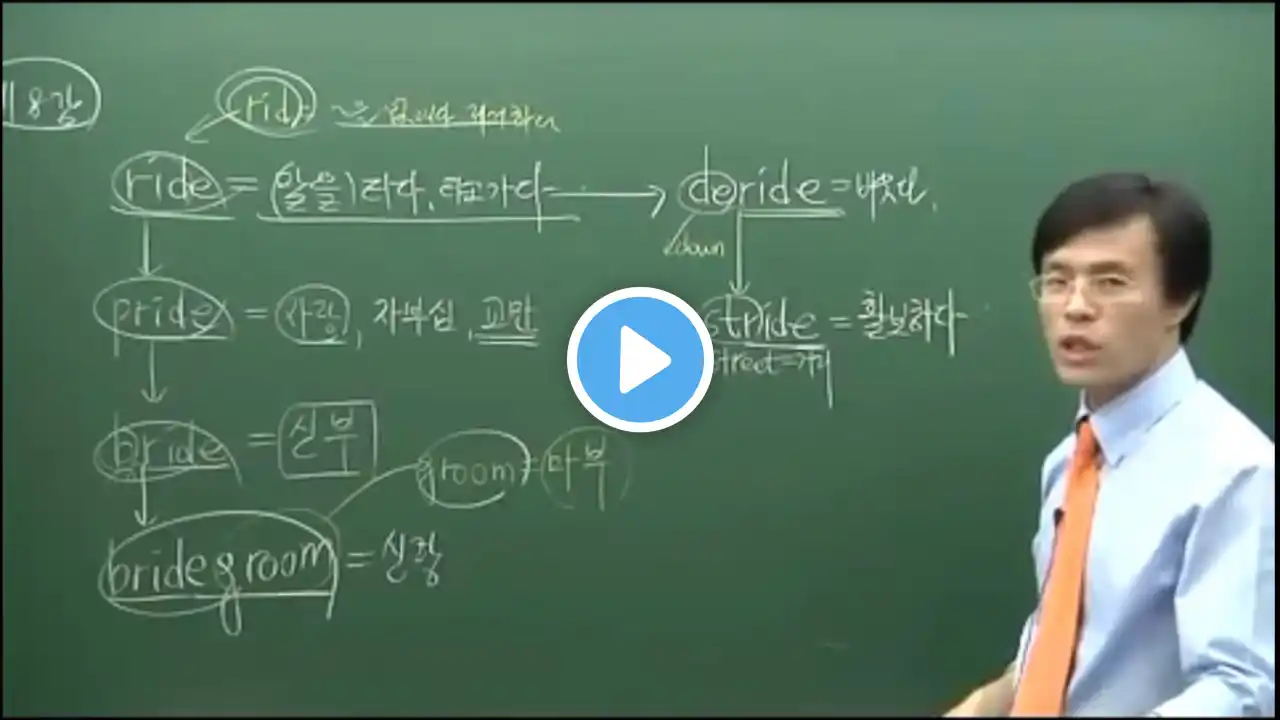 8강
rid
ride = (말을) 타다, 타고가다 → deride = 비웃다,
down
pride = 자랑, 자부심, 교만
stride = 활보하다
street=거리
bride = 신부
groom = 마부
bridegroom = 신랑